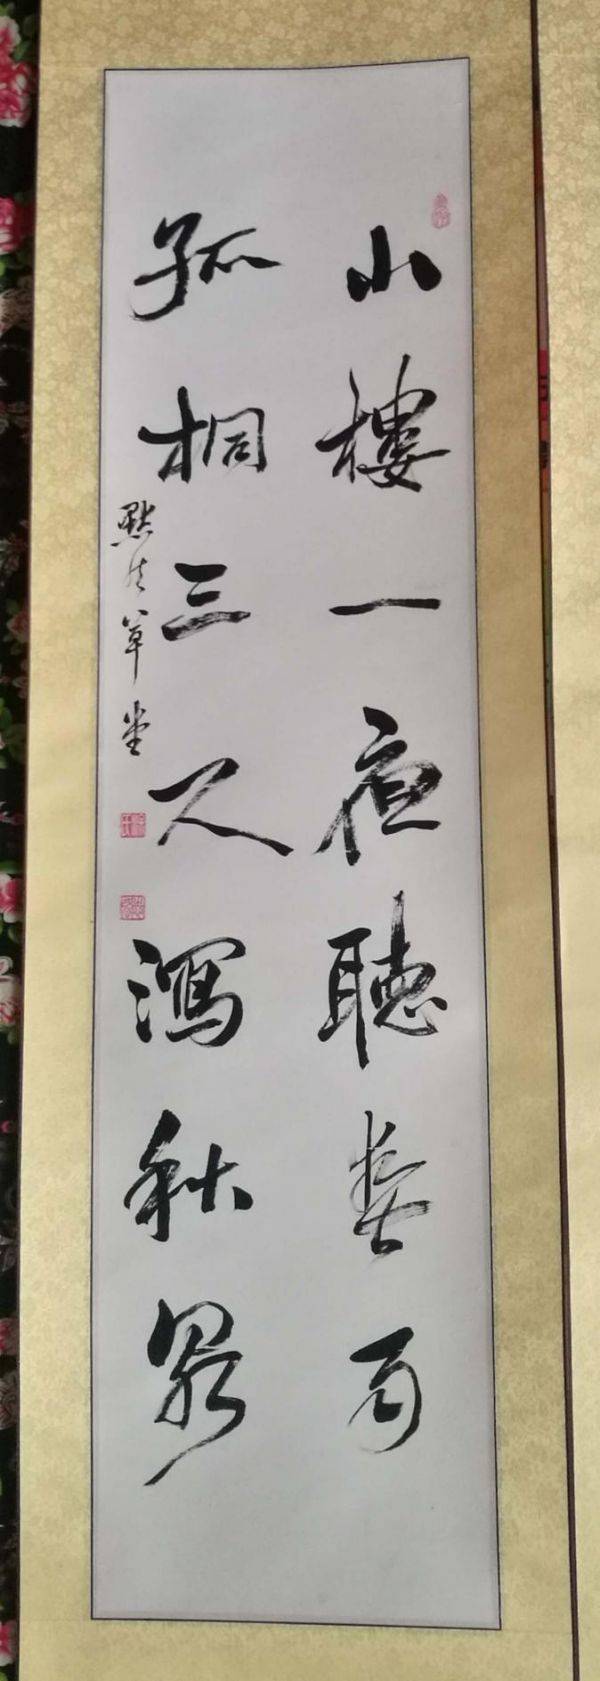 小樓一夜聽春雨
孤桐三尺瀉秋泉
草堂